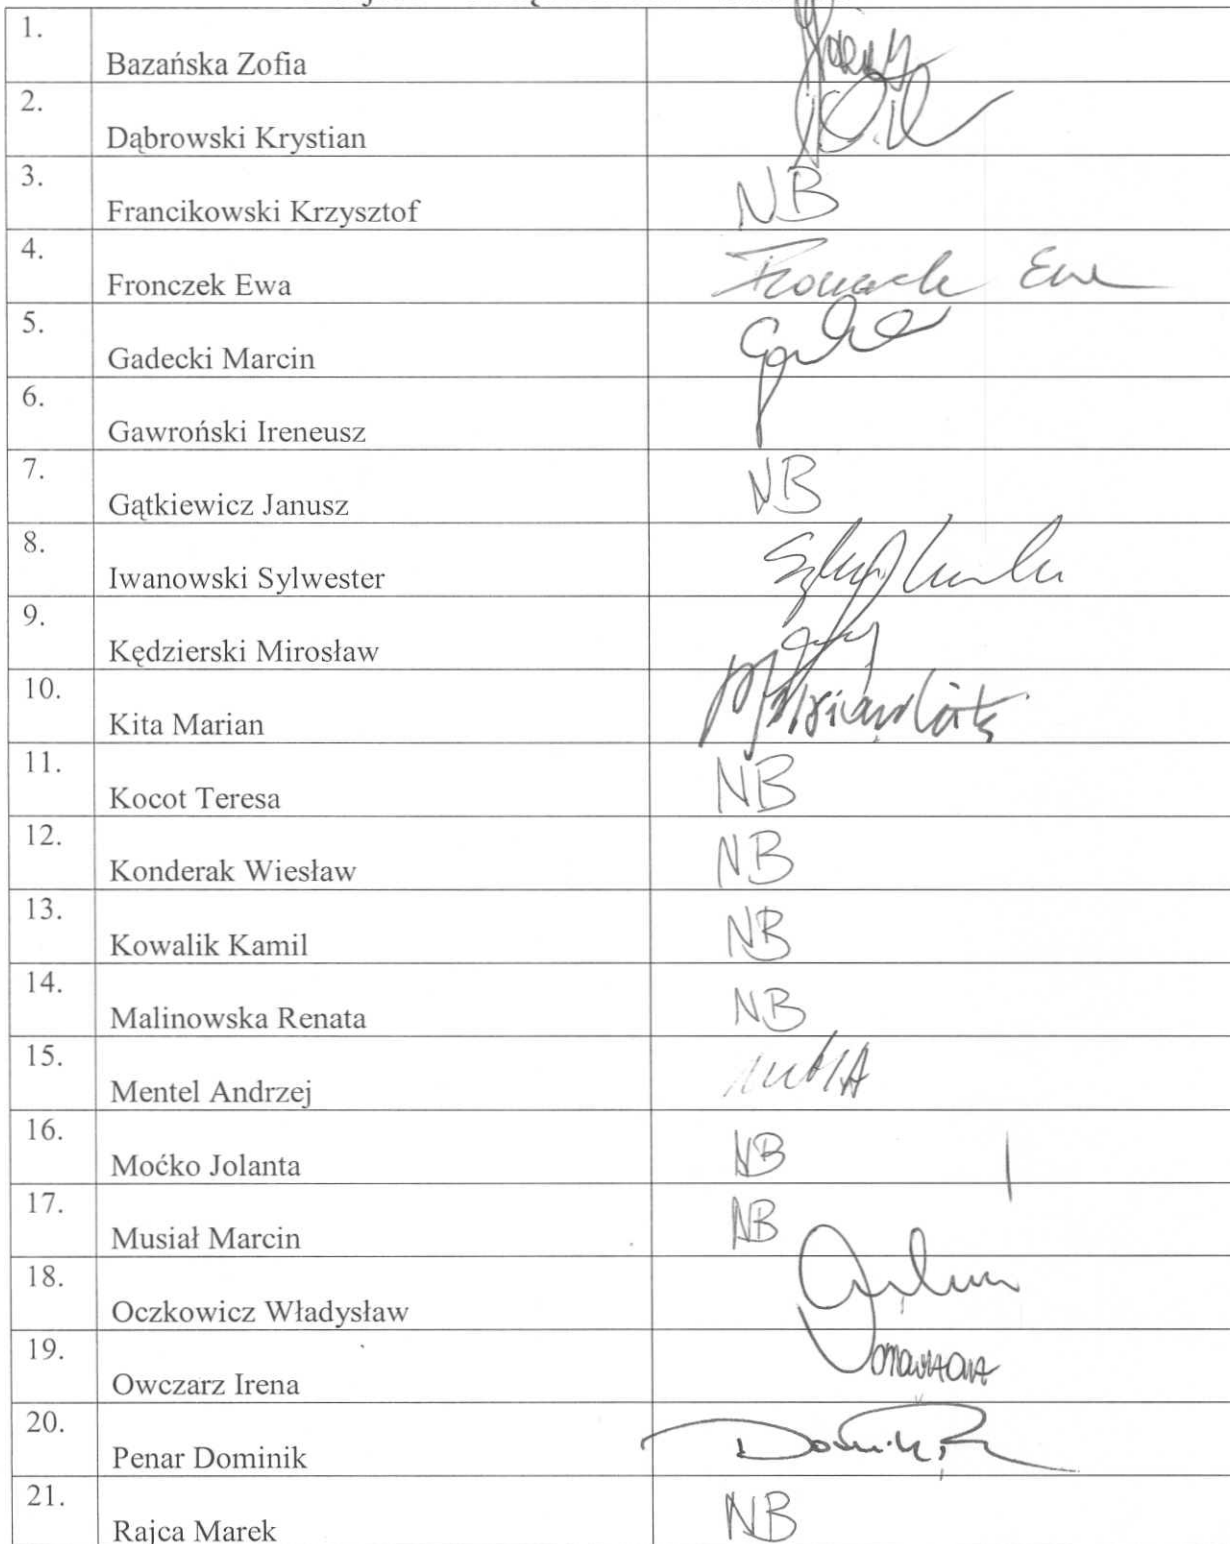 1.
Bazańska Zofia
2.
Dąbrowski Krystian
3.
Francikowski Krzysztof NB
4.
Fronczek Ewa
5.
Gadecki Marcin
6.
Gawroński Ireneusz
7.
Gątkiewicz Janusz NB
8.
Iwanowski Sylwester
9.
Kędzierski Mirosław
10.
Kita Marian
11.
Kocot Teresa NB
12.
Konderak Wiesław NB
13.
Kowalik Kamil NB
14.
Malinowska Renata NB
15.
Mentel Andrzej
16.
Moćko Jolanta NB
17.
Musiał Marcin NB
18.
Oczkowicz Władysław
19.
Owczarz Irena
20.
Penar Dominik
21.
Rajca Marek NB